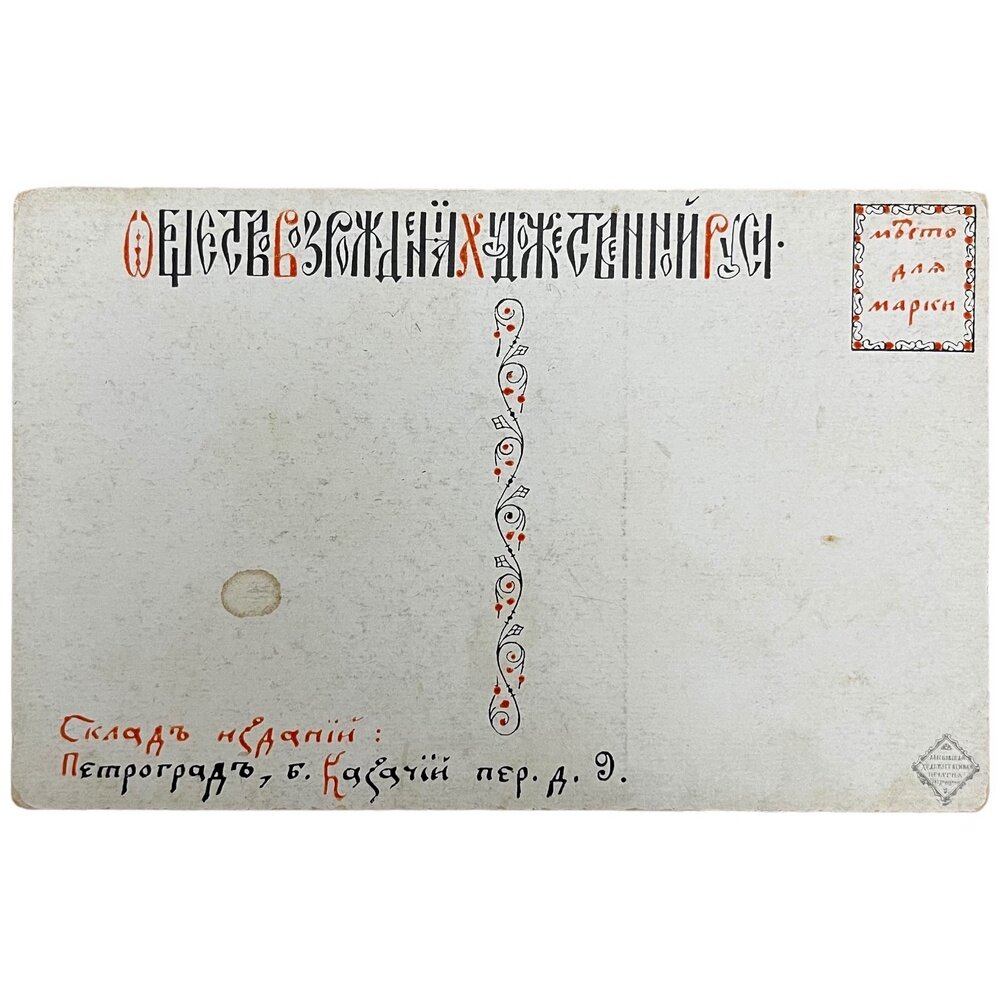 Ѡбщество Возрожденїѧ Художественной Руси.
мѣсто
для
марки
Складъ изданїй:
Петроградъ, б. Казачїй пер. д. 9.